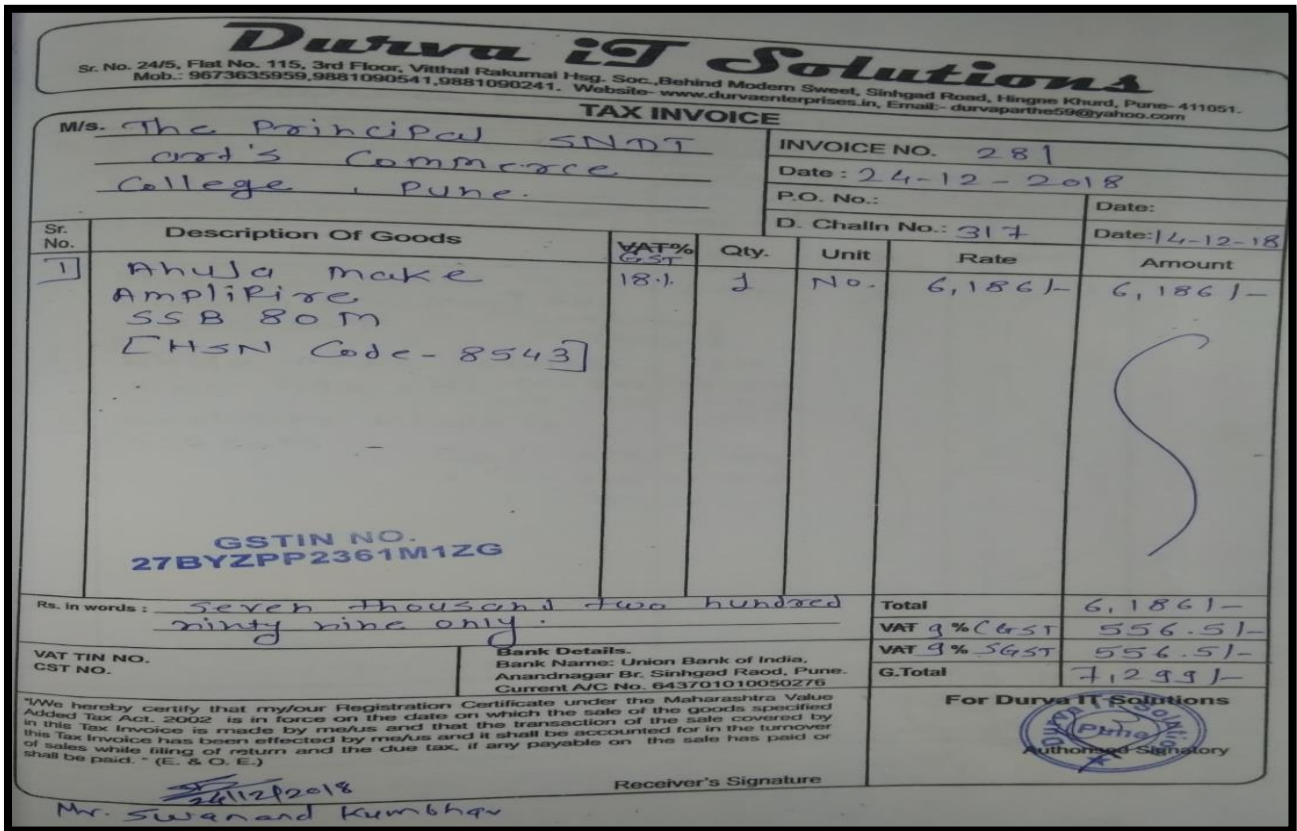 Durva iT Solutions
Sr. No. 24/5, Flat No. 115, 3rd Floor, Vitthal Rakumai Hsg. Soc.,Behind Modern Sweet, Sinhgad Road, Hingne Khurd, Pune- 411051.
Mob.: 9673635959,9881090541,9881090241. Website- www.durvaenterprises.in, Email:- durvaparthe59@yahoo.com
TAX INVOICE
M/s. The Principal SNDT
art's Commerce
College , Pune.
INVOICE NO. 281
Date : 24-12-2018
P.O. No.: Date:
D. Challn No.: 317 Date: 14-12-18
Sr. No. Description Of Goods VAT% GST Qty. Unit Rate Amount
1 Ahuja make 18.% 1 No. 6,186/- 6,186/-
AmpliFire
SSB 80M
[HSN Code - 8543]
GSTIN NO.
27BYZPP2361M1ZG
Rs. in words : Seven thousand two hundred
ninty nine only.
Total 6,186/-
VAT 9 % CGST 556.5/-
VAT 9 % SGST 556.5/-
G.Total 7,299/-
VAT TIN NO.
CST NO.
Bank Details.
Bank Name: Union Bank of India,
Anandnagar Br. Sinhgad Raod, Pune.
Current A/C No. 643701010050276
"I/We hereby certify that my/our Registration Certificate under the Maharashtra Value
Added Tax Act. 2002 is in force on the date on which the sale of the Goods specified
in this Tax Invoice is made by me/us and that the transaction of the sale covered by
this Tax Invoice has been effected by me/us and it shall be accounted for in the turnover
of sales while filing of return and the due tax, if any payable on the sale has paid or
shall be paid. " (E. & O. E.)
For Durva IT Solutions
Pune
Authorised Signatory
Receiver's Signature
24/12/2018
Mr. Swanand Kumbhar